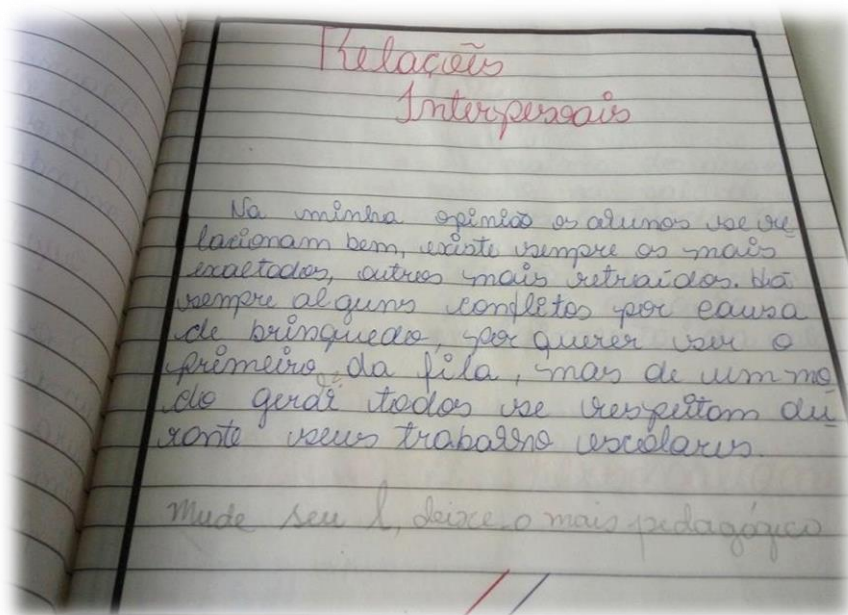 Relações
Interpessoais
Na minha opinião os alunos se re-
lacionam bem, existe sempre os mais
exaltados, outros mais retraídos. Há
sempre alguns conflitos por causa
de brinquedo, por querer ser o
primeiro da fila, mas de um mo-
do geral todos se respeitam du-
rante seus trabalho escolares.
Mude seu l, deixe-o mais pedagógico